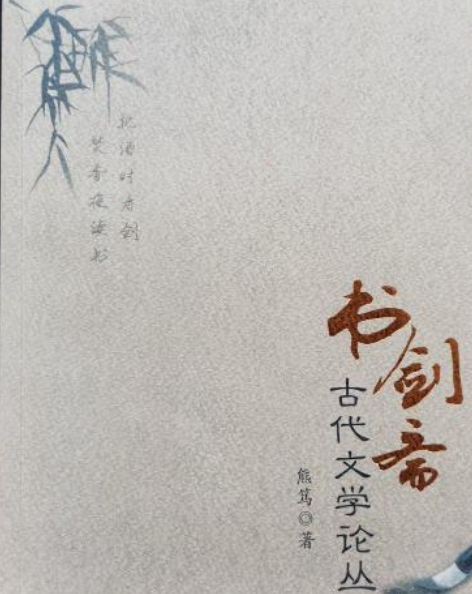 把酒时看剑
焚香夜读书
书剑斋
古代文学论丛
熊笃◎著